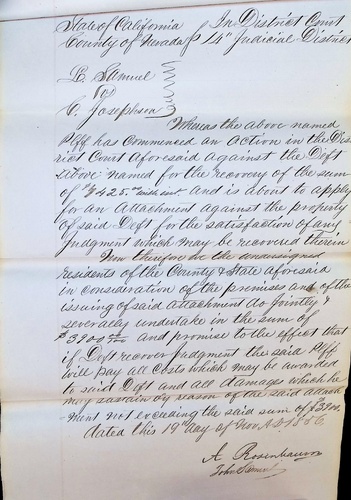 State of California In District Court
County of Nevada } 14" Judicial District
L. Samuel
vs
C. Josephson
Whereas the above named
Plff has commenced an action in the Dist
rict Court aforesaid against the Deft
above named for the recovery of the sum
of $7425. with int and is about to apply
for an Attachment against the property
of said Deft for the satisfaction of any
Judgment which may be recovered therein
Now therefore we the undersigned
residents of the County & State aforesaid
in consideration of the premises and of the
issuing of said Attachment do Jointly &
severally undertake in the sum of
$3900 and promise to the effect that
if Deft recover Judgment the said Plff
will pay all Costs which may be awarded
to said Deft and all damages which he
may sustain by reason of the said attach
ment not exceeding the said sum of $3900.
dated this 19" day of Nov. A.D. 1866.
A Rosenheim
John